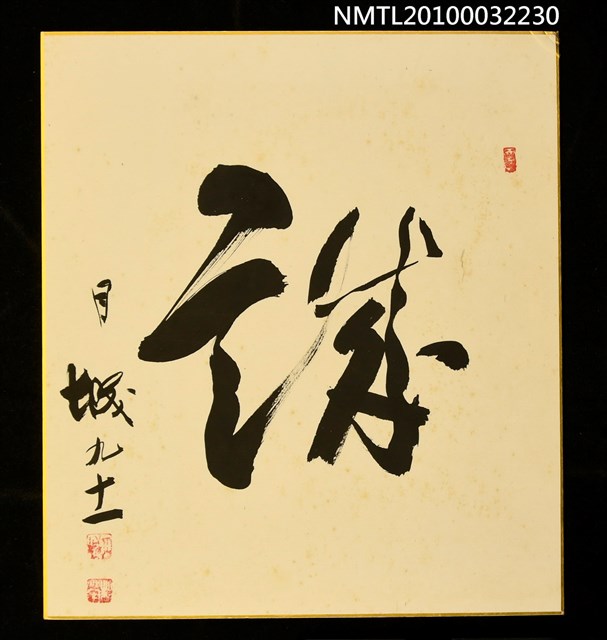 NMTL20100032230
誠
月城九十一